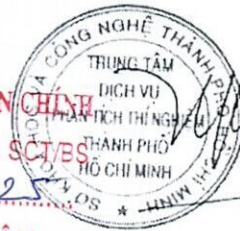 SỞ KHOA HỌC VÀ CÔNG NGHỆ THÀNH PHỐ HỒ CHÍ MINH
TRUNG TÂM
DỊCH VỤ
PHÂN TÍCH THÍ NGHIỆM
THÀNH PHỐ
HỒ CHÍ MINH
N CHÍNH
SCT/BS
25